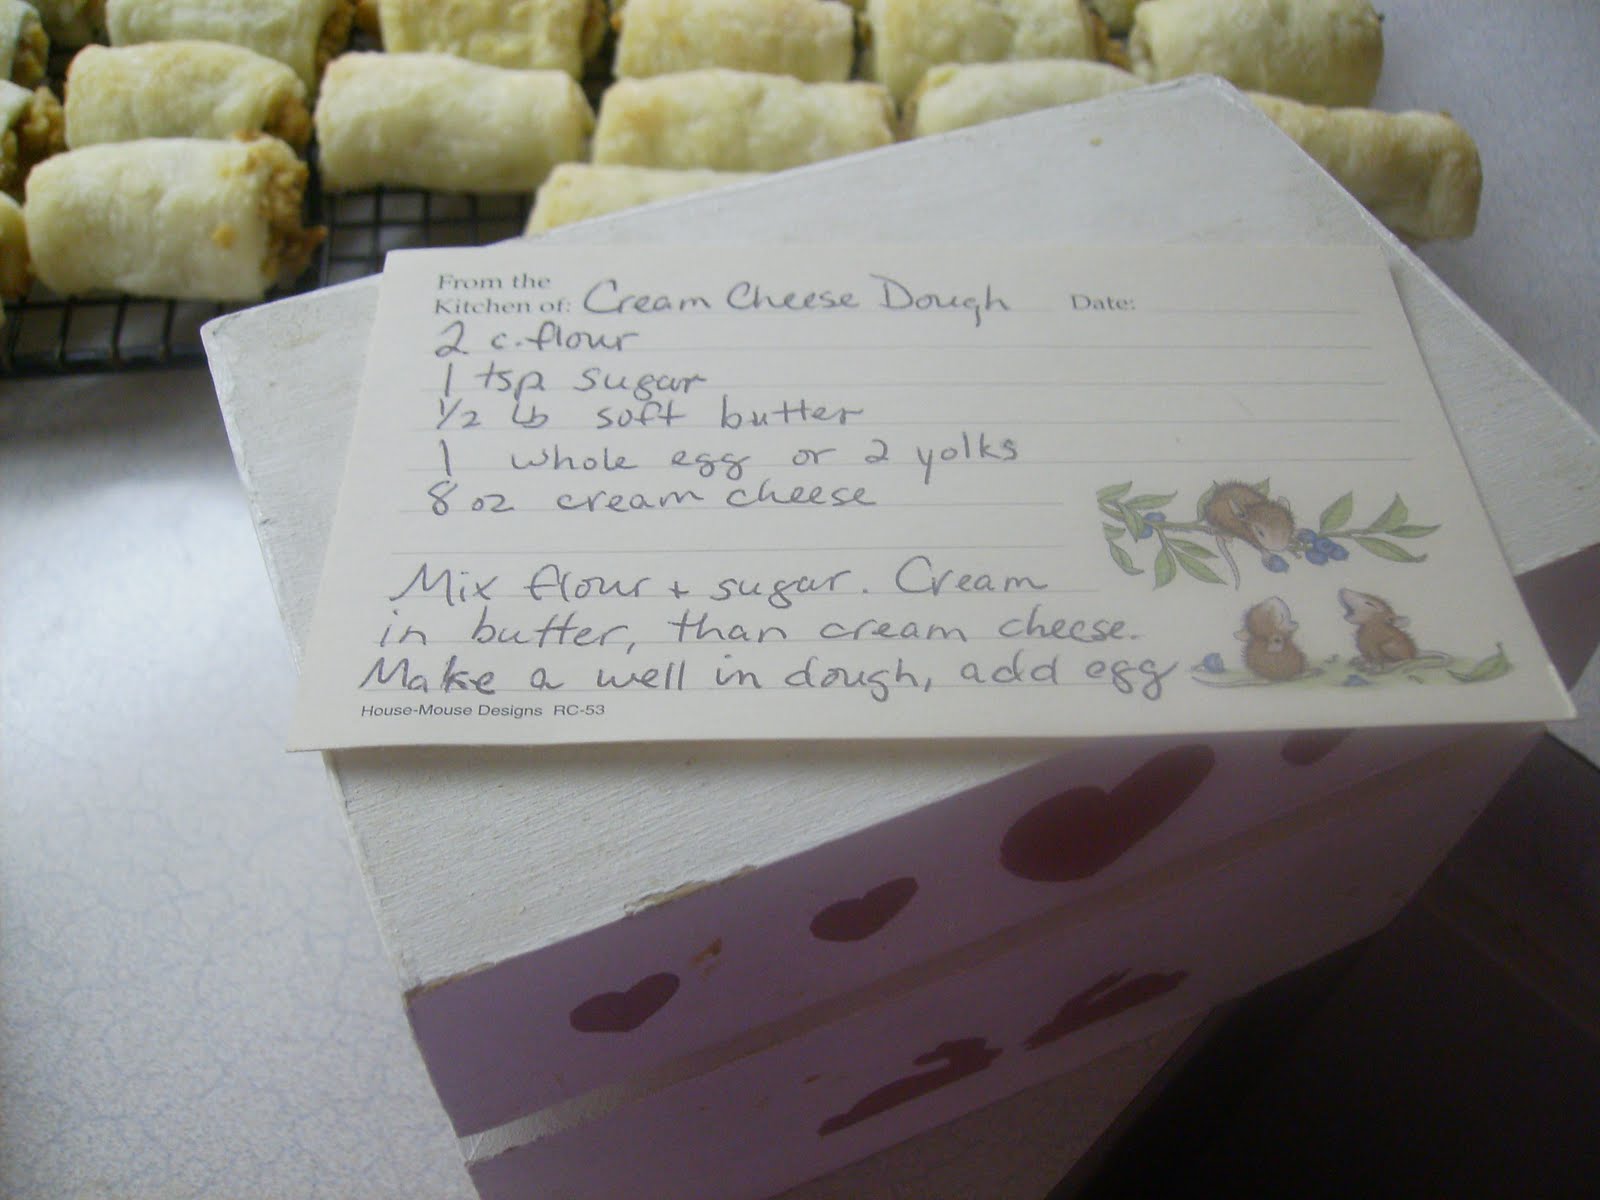 From the
Kitchen of: Cream Cheese Dough Date:
2 c. flour
1 tsp sugar
1/2 lb soft butter
1 whole egg or 2 yolks
8 oz cream cheese
Mix flour + sugar. Cream
in butter, than cream cheese.
Make a well in dough, add egg
House-Mouse Designs RC-53